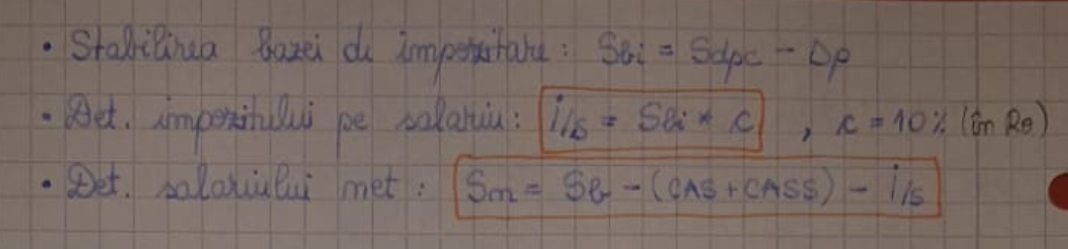 • Stabilirea bazei de impozitare: Sbi = Sdpc - Dp
• Det. impozitului pe salariu: i/s = Sbi * c , c = 10% (în Ro)
• Det. salariului net: Sn = Sb - (CAS + CASS) - i/s